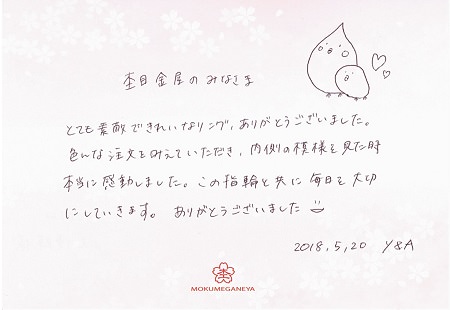 杢目金屋のみなさま
とても素敵できれいなリング、ありがとうございました。
色んな注文を叶えていただき、内側の模様を見た時
本当に感動しました。この指輪と共に毎日を大切
にしていきます。ありがとうございました
2018,5,20 Y&A
MOKUMEGANEYA